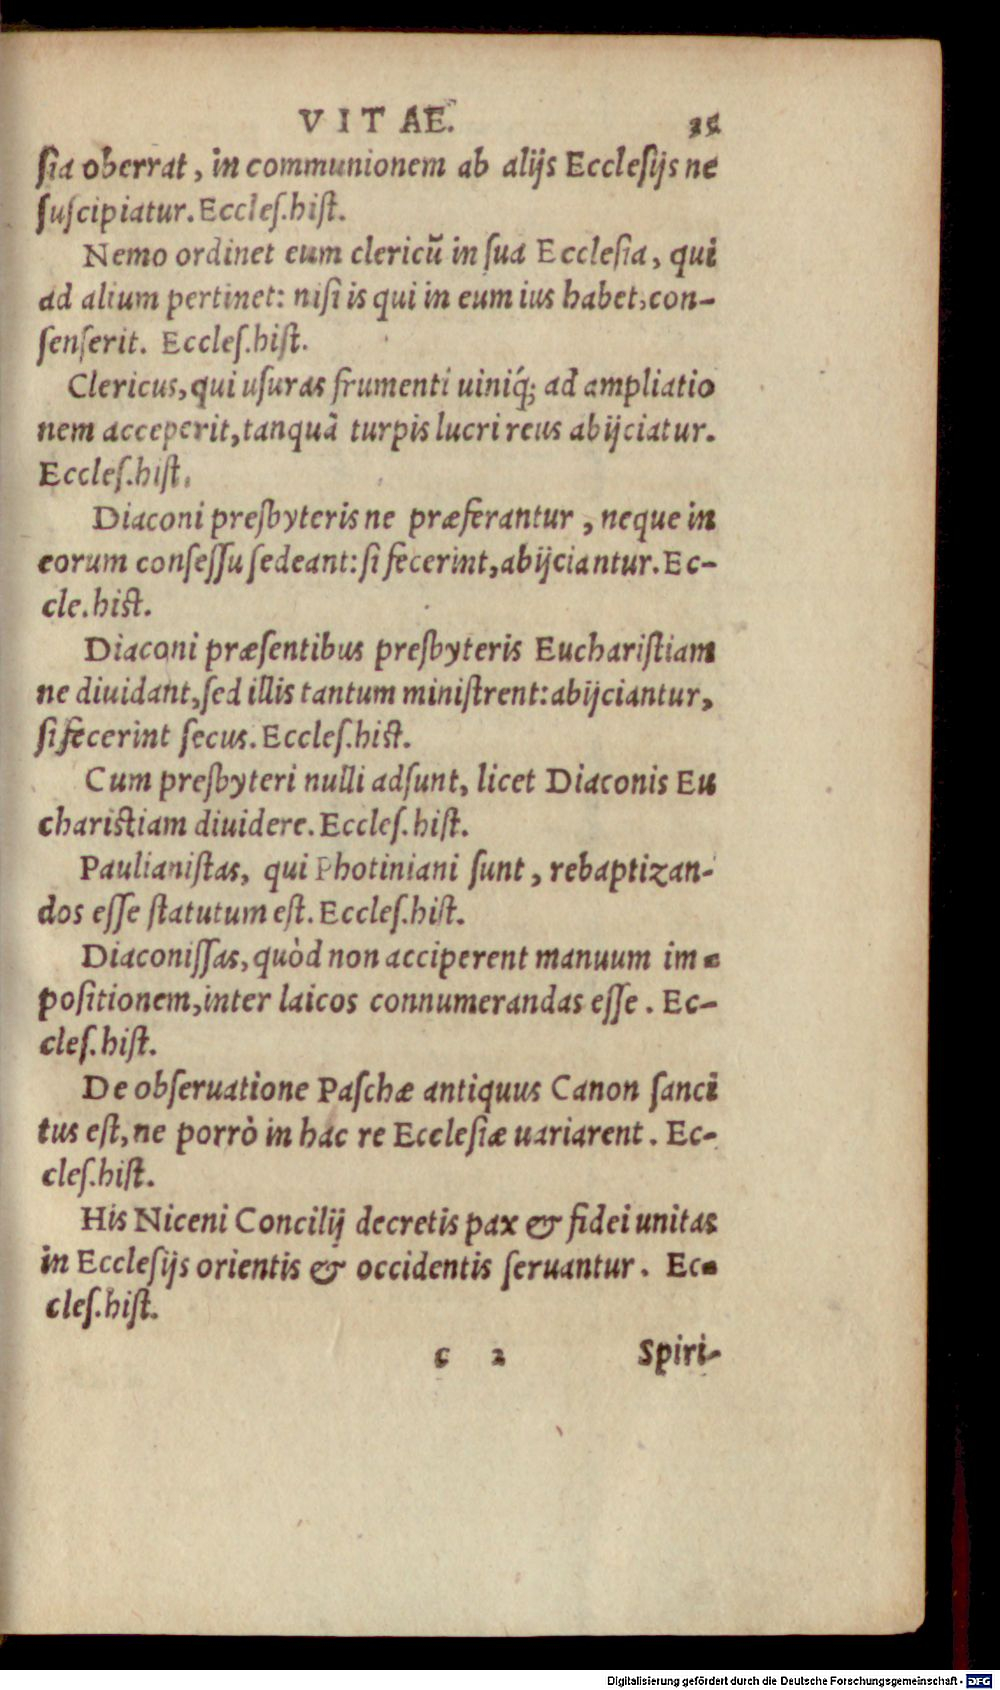 VITAE. 35
ſia oberrat, in communionem ab alijs Eccleſijs ne
ſuſcipiatur. Eccleſ. hiſt.
Nemo ordinet eum clericũ in ſua Eccleſia, qui
ad alium pertinet: niſi is qui in eum ius habet, con-
ſenſerit. Eccleſ. hiſt.
Clericus, qui uſuras frumenti uiniq́; ad ampliatio
nem acceperit, tanquã turpis lucri reus abijciatur.
Eccleſ. hiſt.
Diaconi preſbyteris ne præferantur, neque in
eorum conſeſſu ſedeant: ſi fecerint, abijciantur. Ec-
cle. hiſt.
Diaconi præſentibus preſbyteris Euchariſtiam
ne diuidant, ſed illis tantum miniſtrent: abijciantur,
ſi fecerint ſecus. Eccleſ. hiſt.
Cum preſbyteri nulli adſunt, licet Diaconis Eu
chariſtiam diuidere. Eccleſ. hiſt.
Paulianiſtas, qui Photiniani ſunt, rebaptizan-
dos eſſe ſtatutum eſt. Eccleſ. hiſt.
Diaconiſſas, quòd non acciperent manuum im-
poſitionem, inter laicos connumerandas eſſe. Ec-
cleſ. hiſt.
De obſeruatione Paſchæ antiquus Canon ſanci
tus eſt, ne porrò in hac re Eccleſiæ uariarent. Ec-
cleſ. hiſt.
His Niceni Concilij decretis pax & fidei unitas
in Eccleſijs orientis & occidentis ſeruantur. Ec-
cleſ. hiſt.
c 2 Spiri-
Digitalisierung gefördert durch die Deutsche Forschungsgemeinschaft - DFG